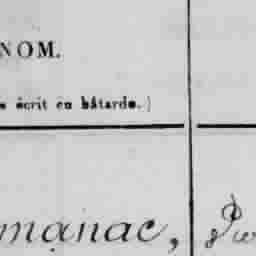 NOM.
écrit en bâtarde.)
manac,